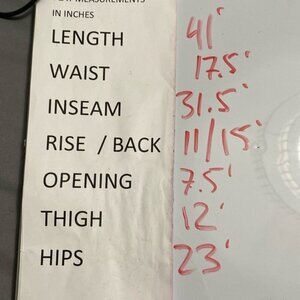 MEASUREMENTS
IN INCHES
LENGTH 41'
WAIST 17.5'
INSEAM 31.5'
RISE / BACK 11/15'
OPENING 7.5'
THIGH 12'
HIPS 23'